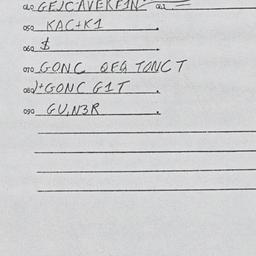 040 GEJCAVEKEJN
050 KAC+K1.
060 $.
070 GONC QEG TONCT
080 )+GONC G1T.
090 GU,N3R.